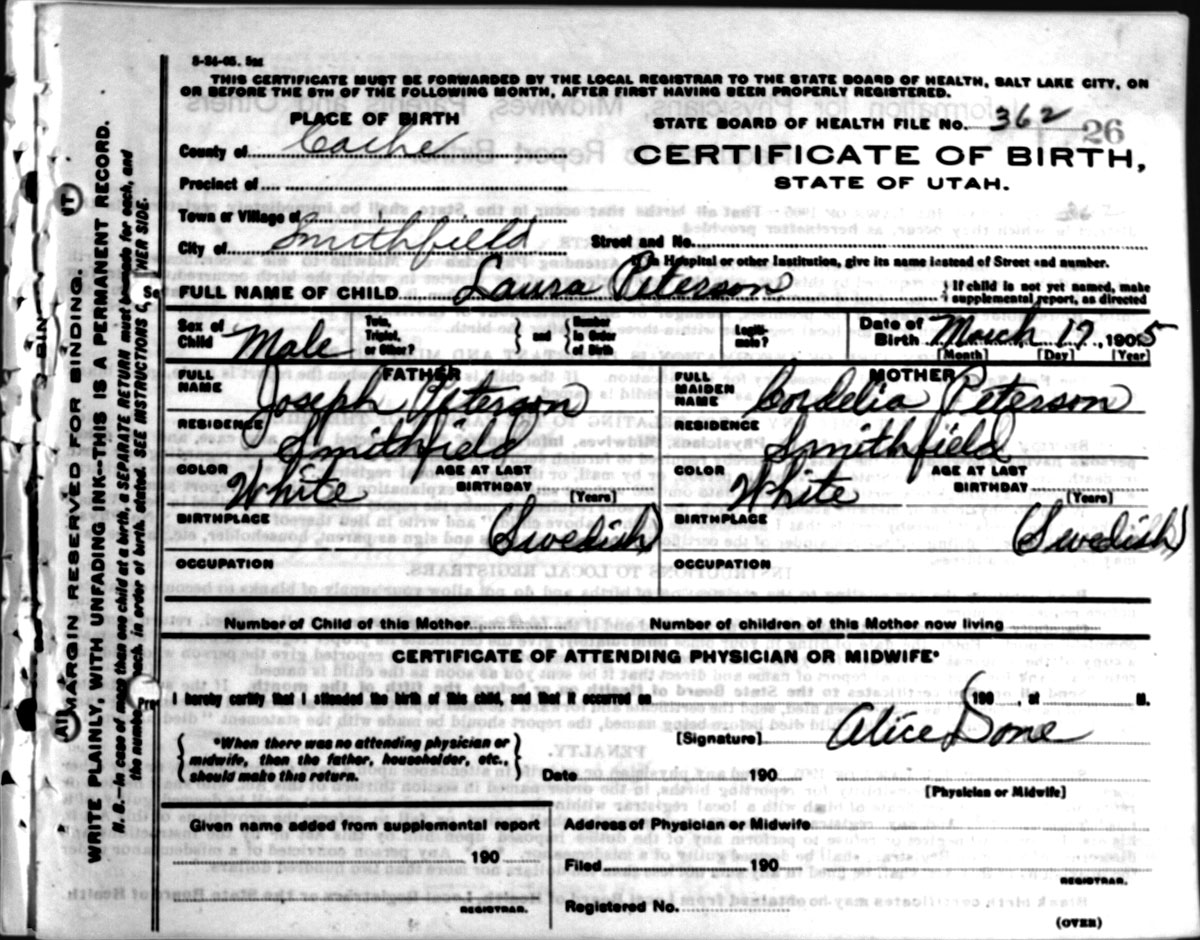 S-26-05. 5M
THIS CERTIFICATE MUST BE FORWARDED BY THE LOCAL REGISTRAR TO THE STATE BOARD OF HEALTH, SALT LAKE CITY, ON
OR BEFORE THE 5TH OF THE FOLLOWING MONTH, AFTER FIRST HAVING BEEN PROPERLY REGISTERED.
PLACE OF BIRTH
STATE BOARD OF HEALTH FILE No. 362
26
County of Cache
CERTIFICATE OF BIRTH,
STATE OF UTAH.
Precinct of
Town or Village of
City of Smithfield
Street and No.
If in Hospital or other Institution, give its name instead of Street and number.
FULL NAME OF CHILD Laura Peterson
If child is not yet named, make
supplemental report, as directed
Sex of Child Male
Twin, Triplet, or Other?
and
Number in Order of Birth
Legitimate?
Date of Birth March 17, 1905
[Month] [Day] [Year]
FATHER
FULL NAME Joseph Peterson
RESIDENCE Smithfield
COLOR White AGE AT LAST BIRTHDAY [Years]
BIRTHPLACE (Swedish)
OCCUPATION
MOTHER
FULL MAIDEN NAME Cordelia Peterson
RESIDENCE Smithfield
COLOR White AGE AT LAST BIRTHDAY [Years]
BIRTHPLACE (Swedish)
OCCUPATION
Number of Child of this Mother
Number of children of this Mother now living
CERTIFICATE OF ATTENDING PHYSICIAN OR MIDWIFE*
I hereby certify that I attended the birth of this child, and that it occurred on 190 , at M.
*When there was no attending physician or
midwife, then the father, householder, etc.,
should make this return.
[Signature] Alice Done
Date 190
[Physician or Midwife]
Given name added from supplemental report
190
REGISTRAR.
Address of Physician or Midwife
Filed 190
REGISTRAR.
Registered No.
(OVER)
MARGIN RESERVED FOR BINDING.
WRITE PLAINLY, WITH UNFADING INK--THIS IS A PERMANENT RECORD.
N. B.--In case of more than one child at a birth, a SEPARATE RETURN must be made for each, and
the number of each, in order of birth, stated. SEE INSTRUCTIONS